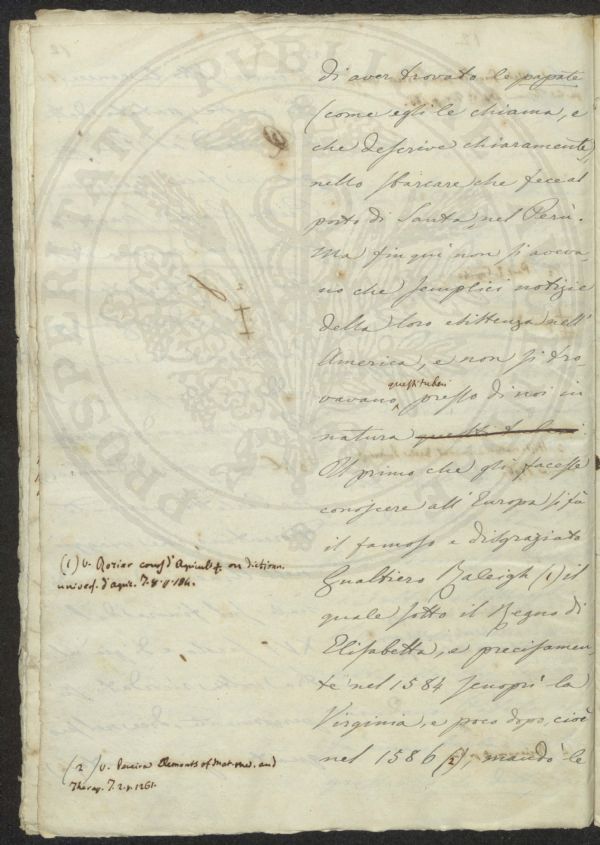 di aver trovato le papate
(come egli le chiama, e
che descrive chiaramente)
nello sbarcare che fece al
porto di Santa, nel Perù.
Ma fin qui non si aveva-
no che semplici notizie
della loro esistenza nell'
America, e non si tro-
vavano questi tuberi presso di noi in
natura
Il primo che gli facesse
conoscere all'Europa si fù
il famoso e disgraziato
Gualtiero Raleigh (1) il
quale sotto il Regno di
Elisabetta, e precisamen-
te nel 1584 scuoprì la
Virginia, e poco dopo, cioè
nel 1586 (2), mandò le
(1) v. Rozier cours d'Agricult. ou diction.
univers. d'agric. T. 8. p. 184.
(2) v. Pereira Elements of Mat. med. and
Therap. T. 2. p. 1261.
PROSPERITATI PVBLICAE